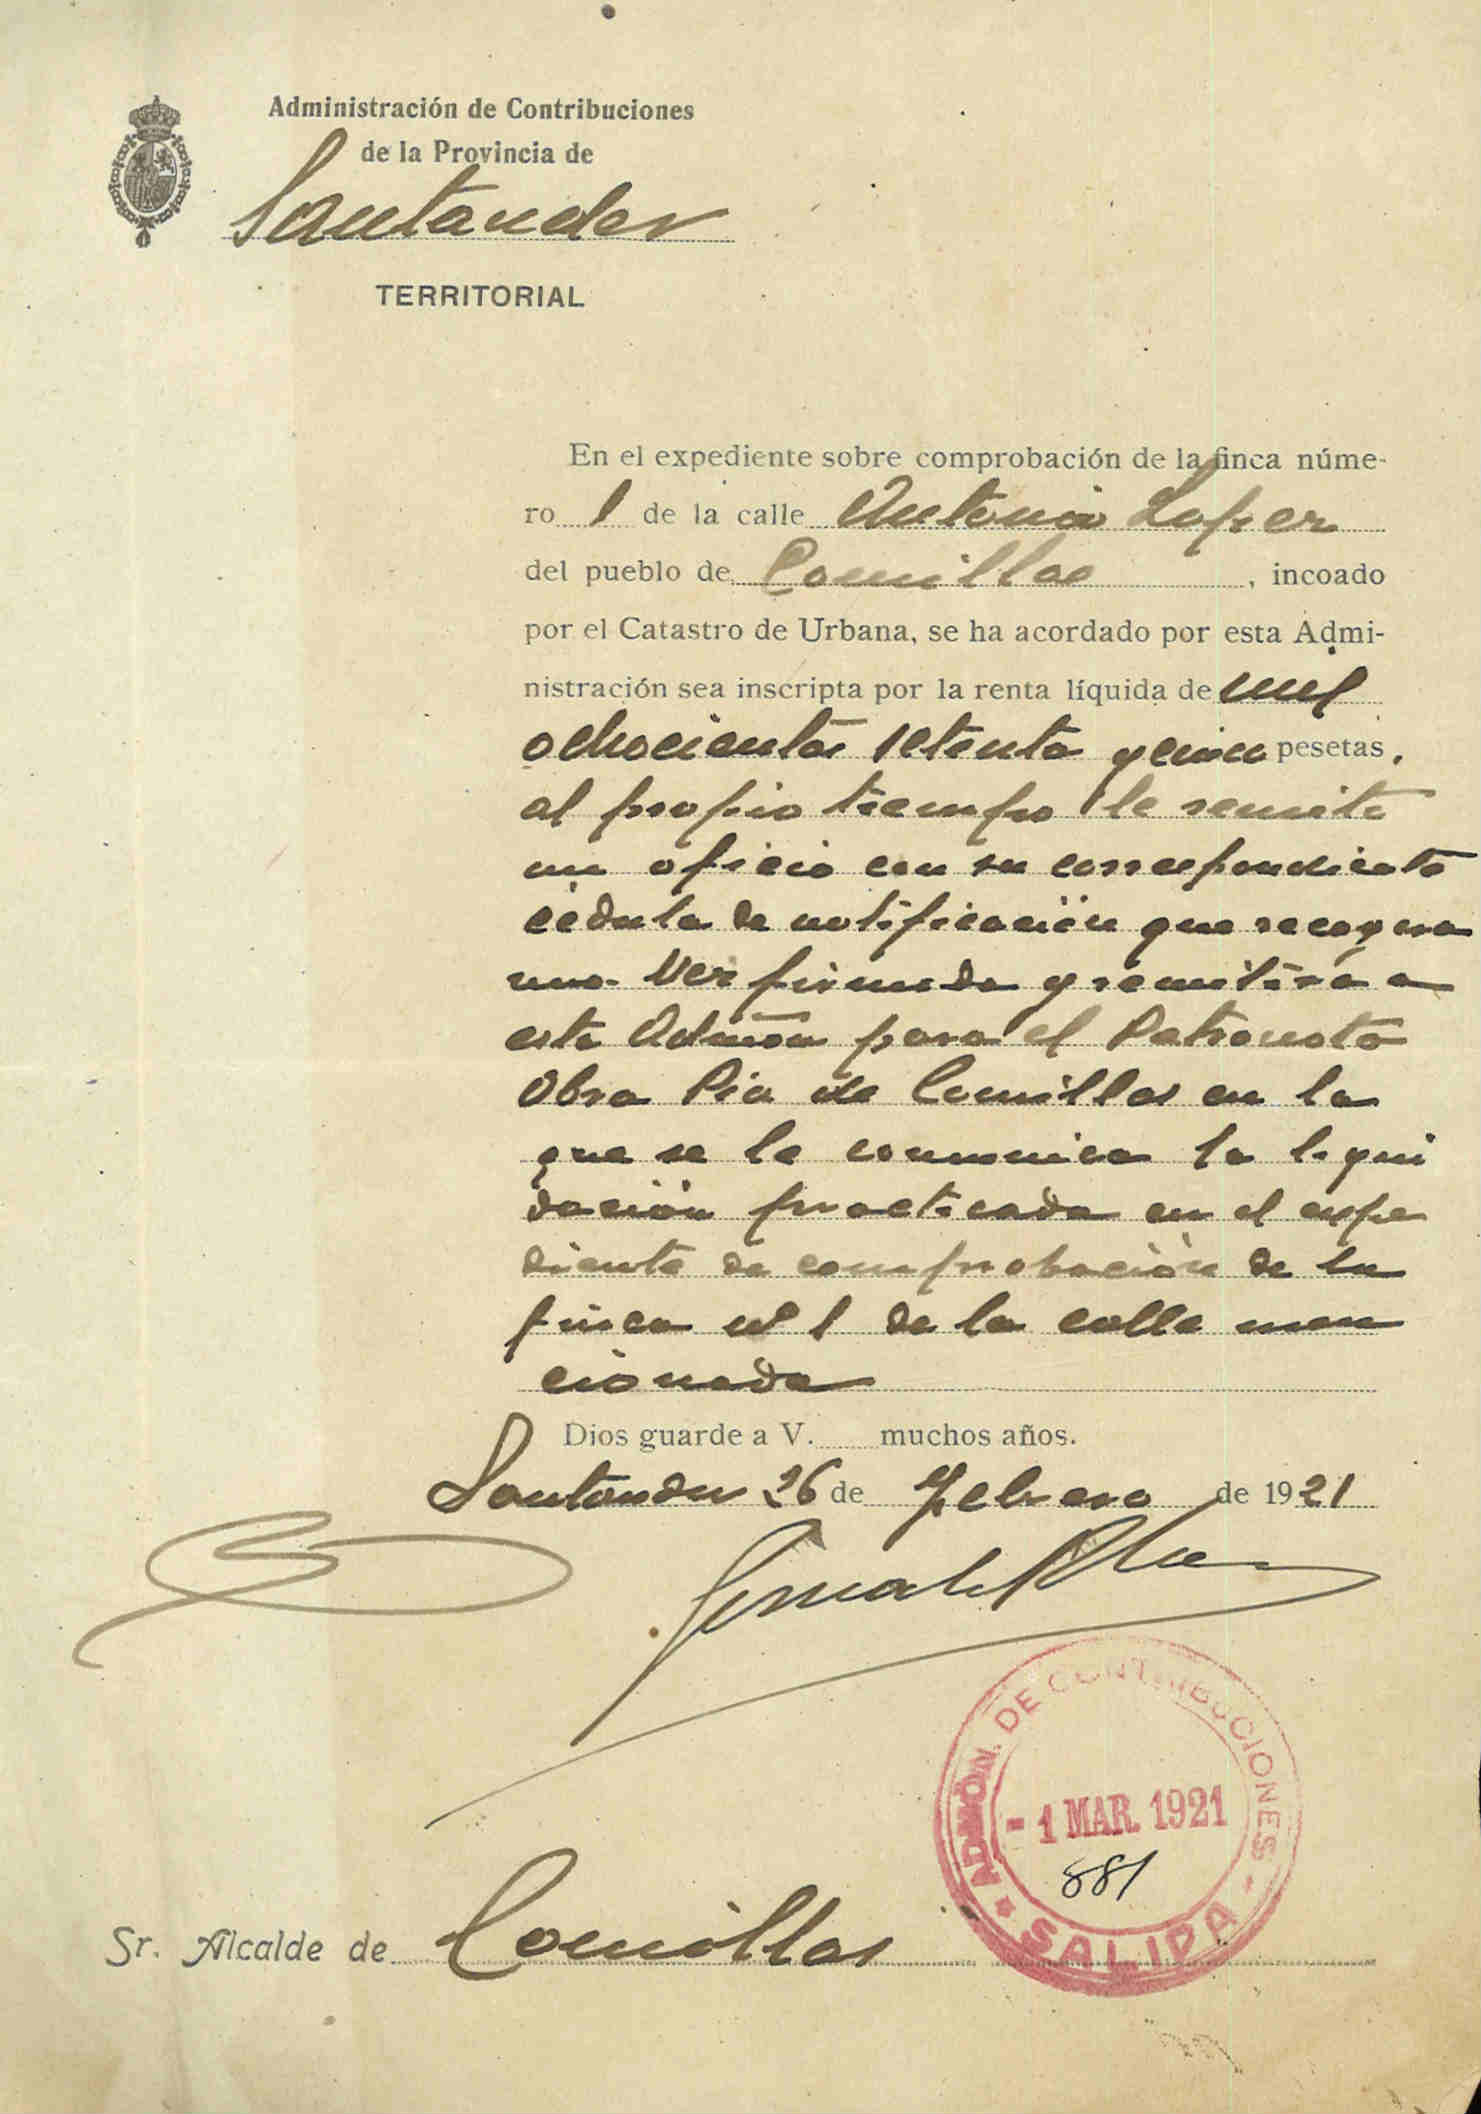 Administración de Contribuciones
de la Provincia de
Santander
TERRITORIAL
En el expediente sobre comprobación de la finca núme-
ro 1 de la calle Antonio Lopez
del pueblo de Comillas, incoado
por el Catastro de Urbana, se ha acordado por esta Admi-
nistración sea inscripta por la renta líquida de mil
ochocientas setenta y cinco pesetas,
al propio tiempo le remito
un oficio con su correspondiente
cédula de notificación que recogera
una vez firmada y remitirá a
esta Admón para el Patronato
Obra Pia de Comillas en la
que se le comunica la liqui
dación practicada en el expe
diente de comprobación de la
finca nº 1 de la calle men
cionada
Dios guarde a V. muchos años.
Santander 26 de Febrero de 1921
ADMÓN. DE CONTRIBUCIONES
- 1 MAR. 1921
881
SALIDA
Sr. Alcalde de Comillas